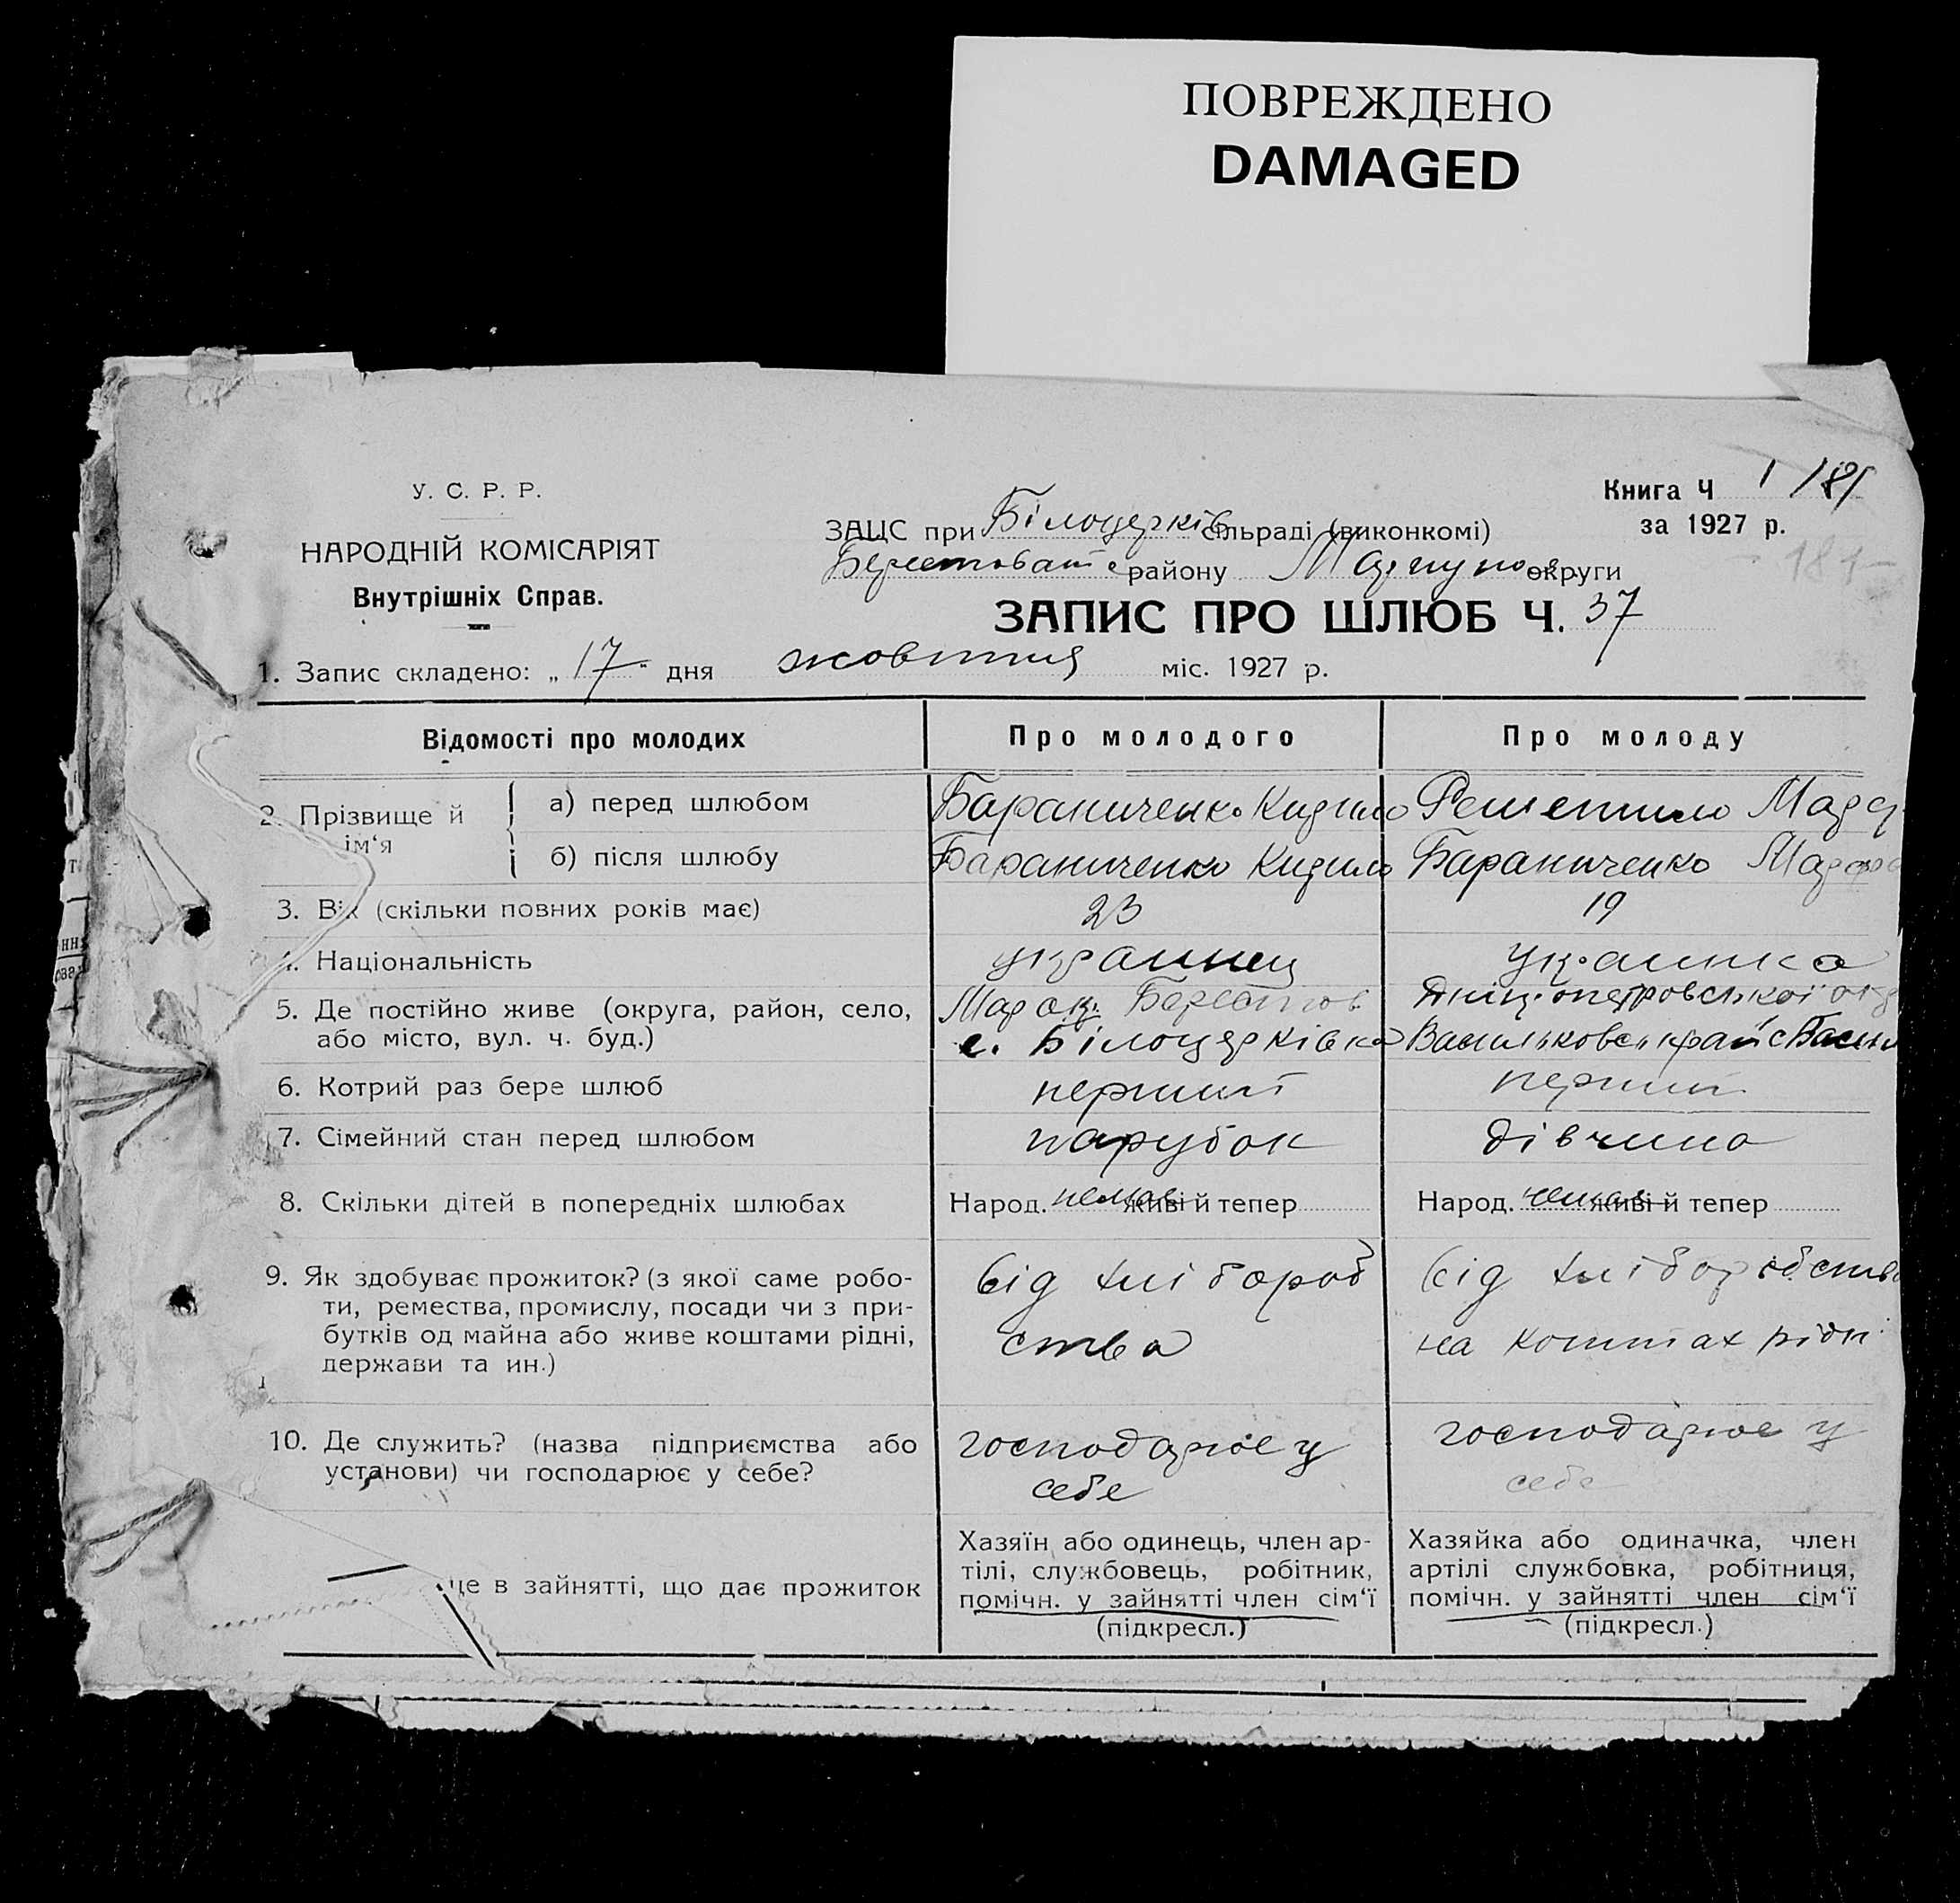 ПОВРЕЖДЕНО
DAMAGED
У. С. Р. Р.
НАРОДНІЙ КОМІСАРІЯТ
Внутрішніх Справ.
Книга Ч 1
за 1927 р.
ЗАЦС при Білоцерків сільраді (виконкомі)
району округи
ЗАПИС ПРО ШЛЮБ Ч. 37
1. Запис складено: „ 17 “ дня жовтня міс. 1927 р.
Відомості про молодих
Про молодого
Про молоду
2. Прізвище й ім‘я
а) перед шлюбом
Бараниченко Кирило
б) після шлюбу
Бараниченко Кирило
Бараниченко
3. Вік (скільки повних років має)
23
19
4. Національність
украинец
украинка
5. Де постійно живе (округа, район, село,
або місто, вул. ч. буд.)
Мар ок. Берестов
с. Білоцерківка
6. Котрий раз бере шлюб
перший
перший
7. Сімейний стан перед шлюбом
парубок
дівчина
8. Скільки дітей в попередніх шлюбах
Народ. немає живі й тепер
Народ. немає живі й тепер
9. Як здобуває прожиток? (з якої саме робо-
ти, ремества, промислу, посади чи з при-
бутків од майна або живе коштами рідні,
держави та ин.)
від хлібороб
ства
від хліборобства
на коштах рідн
10. Де служить? (назва підприємства або
установи) чи господарює у себе?
господарює у
себе
господарює у
себе
це в зайнятті, що дає прожиток
Хазяїн або одинець, член ар-
тілі, службовець, робітник,
помічн. у зайнятті член сім‘ї
(підкресл.)
Хазяйка або одиначка, член
артілі службовка, робітниця,
помічн. у зайнятті член сім‘ї
(підкресл.)